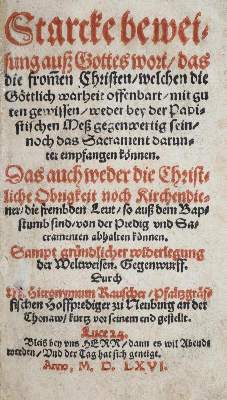 Starcke bewei-
sung auß Gottes wort/ das
die from̃en Christen/ welchen die
Göttlich warheit offenbart/ mit gu
ten gewissen/ weder bey der Papi-
stischen Meß gegenwertig sein/
noch das Sacrament darun-
ter empfangen können.
Das auch weder die Christ-
liche Obrigkeit noch Kirchendie-
ner/ die frembden Leut/ so auß dem Bap-
stumb sind/ von der Predig vnd Sa-
cramenten abhalten können.
Sampt gründlicher widerlegung
der Weltweisen Gegenwurff.
Durch
M. Hieronymum Rauscher/ Pfaltzgräf-
fischen Hoffprediger zu Neuburg an der
Thonaw/ kurtz vor seinem end gestellt.
Luce 24.
Bleib bey vns HERR/ dann es wil Abends
werden/ Vnd der Tag hat sich geneigt.
Anno, M. D. LXVI.